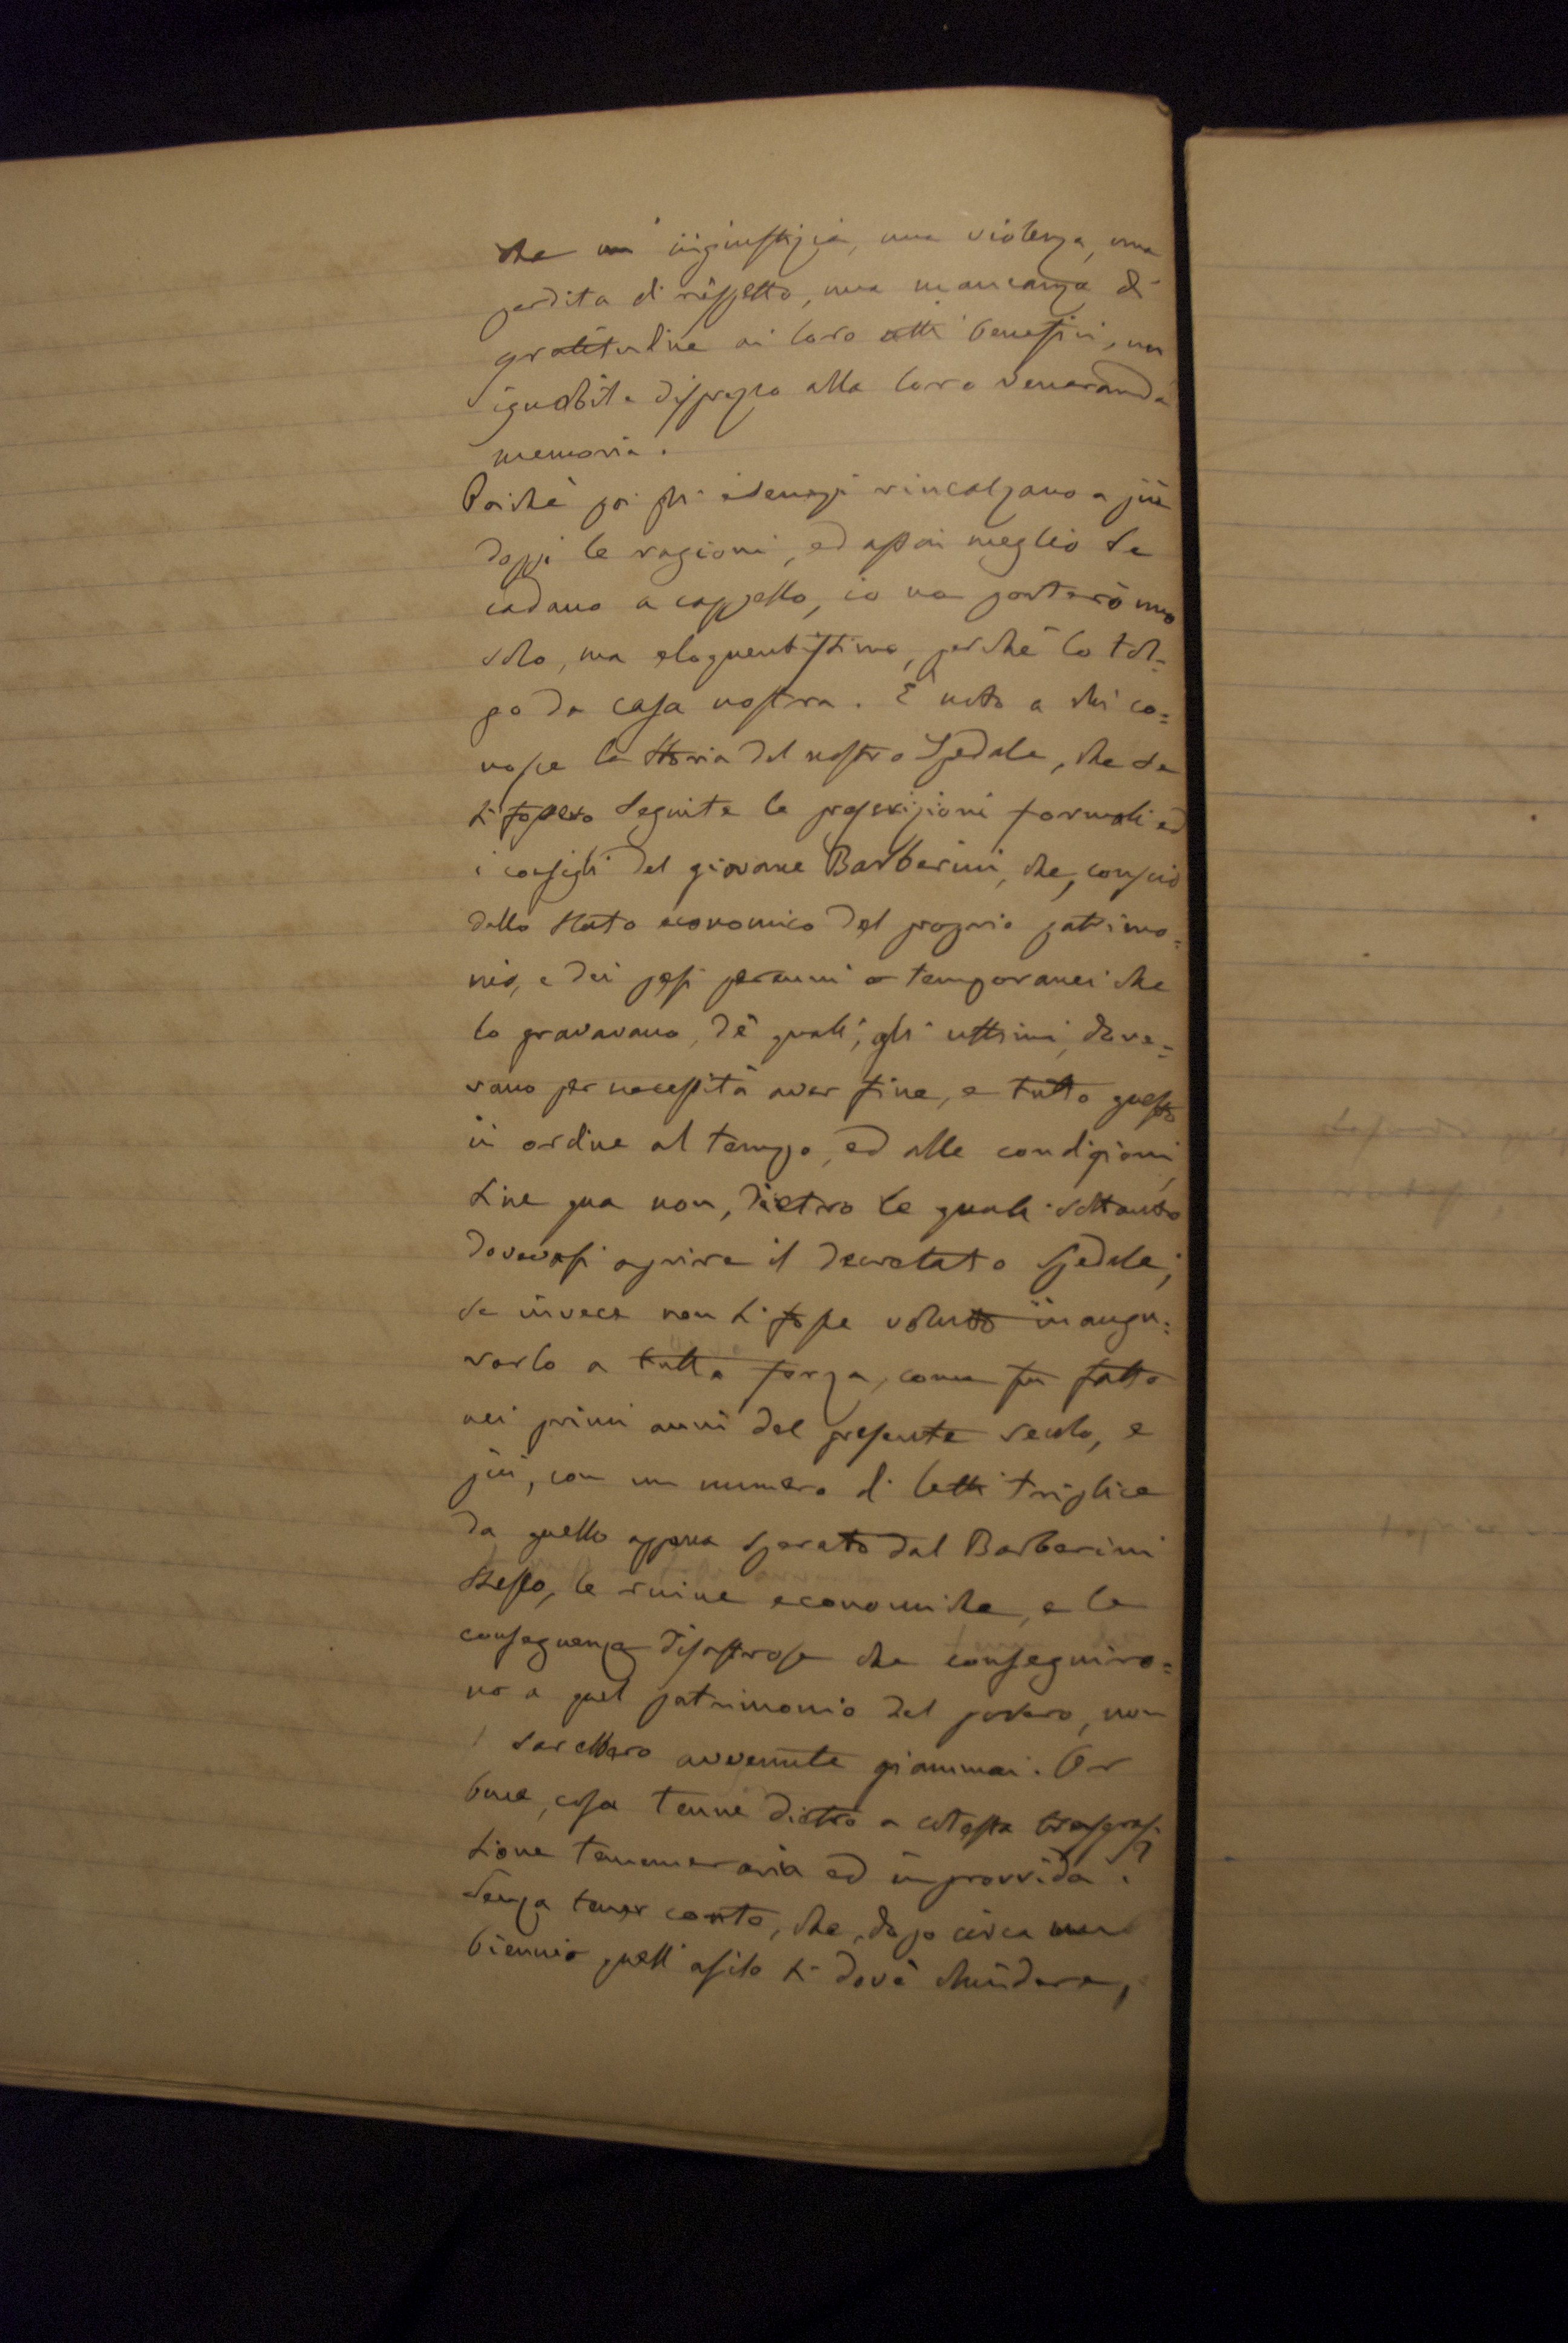 che un' ingiustizia, una violenza, una
perdita di rispetto, una mancanza di
gratitudine ai loro atti benefici, un
ignobile disprezzo alla loro veneranda
memoria.
Poichè poi gli esempi rincalzano a più
doppi le ragioni, ed assai meglio se
cadano a cappello, io ne porterò uno
solo, ma eloquentissimo, perchè lo tol=
go da casa nostra. È noto a chi co=
nosce la storia del nostro Spedale, che se
si fossero seguite le prescrizioni formali ed
i consigli del giovane Barberini, che, conscio
dello stato economico del proprio patrimo=
nio, e dei pesi perenni o temporanei che
lo gravavano, de' quali, gli ultimi, dove=
vano per necessità aver fine, e tutto questo
in ordine al tempo, ed alle condizioni
sine qua non, dietro le quali soltanto
dovevasi aprire il decretato Spedale;
se invece non si fosse voluto inaugu=
rarlo a tutta forza, come fu fatto
nei primi anni del presente secolo, e
più, con un numero di letti triplice
da quello appena sperato dal Barberini
stesso, le ruine economiche, e le
conseguenze disastrose che conseguiro=
no a quel patrimonio del povero, non
sarebbero avvenute giammai. Or
bene, cosa tenne dietro a cotesta trasgres-
sione temeraria ed improvvida?
Senza tener conto, che, dopo circa un
biennio quell' asilo si dovè chiudere,